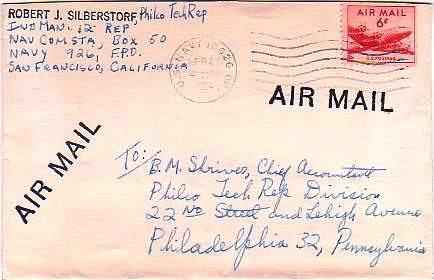 ROBERT J. SILBERSTORF, Philco Tech Rep
IND MAN. 12 REP
NAV COM STA, BOX 50
NAVY 926, F.P.O.
SAN FRANCISCO, CALIFORNIA
U.S. NAVY 10926
AIR MAIL
6¢
U.S. POSTAGE
AIR MAIL
AIR MAIL
To:
B.M. Shriver, Chief Accountant
Philco Tech Rep Division
22 ND Street and Lehigh Avenue
Philadelphia 32, Pennsylvania